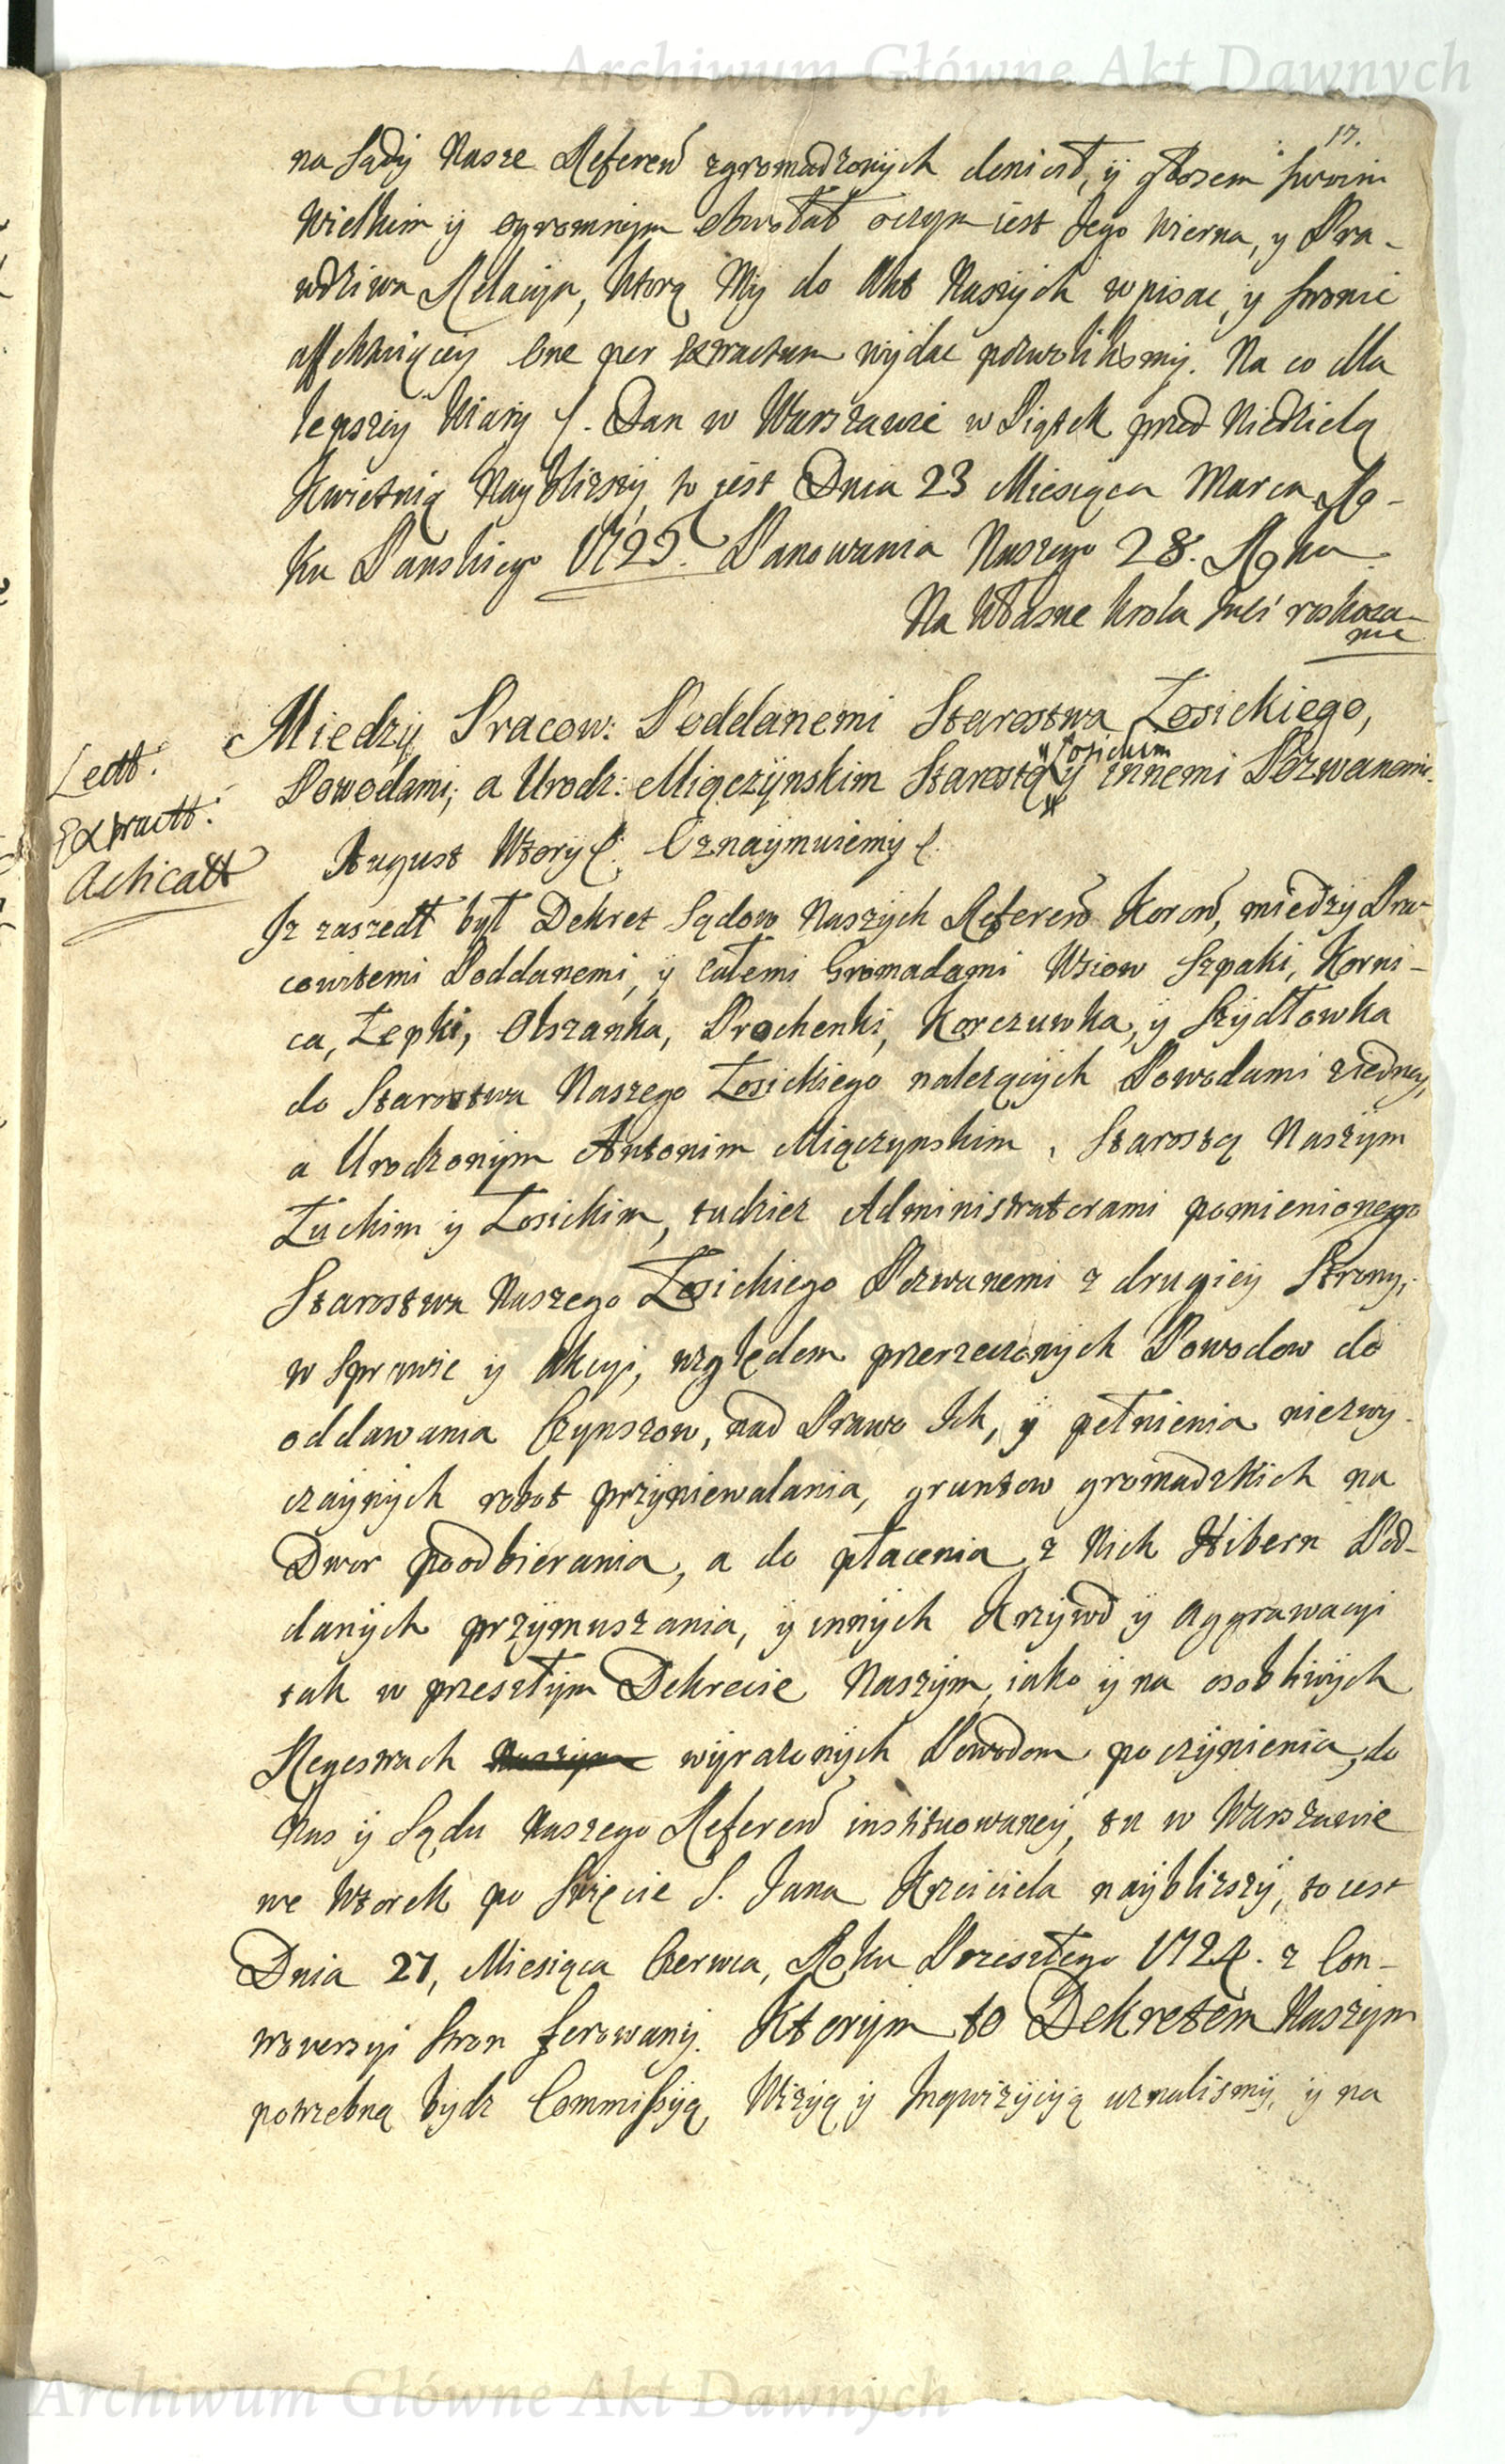 Archiwum Główne Akt Dawnych
17.
na Sądy Nasze Referen̄ zgromadzonych doniosł, y głosem swoim
Wielkim y ogromnym obwołał oczym iest Jego Wierna, y Pra-
wdziwa Relacya, ktorą My do Akt Naszych wpisac, y stronie
affektuiącey one per extractum wydac pozwolilismy. Na co dla
lepszey Wiary /. Dan w Warszawie w Piątek przed Niedzielą
Kwietnią Naybliższy, to iest Dnia 23 Miesiąca Marca Ro-
ku Panskiego 1725. Panowania Naszego 28. Roku.
Na Własne Krola Jmci roskaza-
nie
Miedzy Pracow: Poddanemi Starostwa Łosickiego,
Łosickim
Powodami; a Urodz: Miączynskim Starostą y innemi Pozwanemi.
Lectt:
Extractt:
August Wtory /. Oznaymuiemy /.
Isz zaszedł był Dekret Sądow Naszych Referen̄ Koron̄, miedzy Pra-
cowitemi Poddanemi, y całemi Gromadami Wsiow Szpaki, Korni-
ca, Łepki, Olszanka, Prochenki, Korczuwka, y Szydłowka
do Starostwa Naszego Łosickiego nalezących Powodami ziedney,
a Urodzonym Antonim Miączynskim, Starostą Naszym
Łuckim y Łosickim, tudziez Administratorami pomienionego
Starostwa Naszego Łosickiego Pozwanemi z drugiey Strony;
w Sprawie y Akcyi, względem przerzeczonych Powodow do
oddawania Czynszow, nad Prawo Ich, y pełnienia niezwy-
czaynych robot przyniewalania, gruntow gromadzkich na
Dwor poodbierania, a do płacenia z Nich Hibern Pod-
danych przymuszania, y innych Krzywd y Aggrawacyi
tak w przeszłym Dekrecie Naszym, iako y na osobliwych
Regestrach wyrazonych Powodom poczynienia, do
Nas y Sądu Naszego Referen̄ instituowaney, tu w Warszawie
we Wtorek po Swięcie S. Jana Krzciciela nayblizszy, to iest
Dnia 27, Miesiąca Czerwca, Roku Przeszłego 1724. z Con-
troversyi Stron ferowany. Ktorym to Dekretem Naszym
potrzebną bydz Commissyą, Wizyą y Inquizycyą uznalismy, y na
Archiwum Główne Akt Dawnych